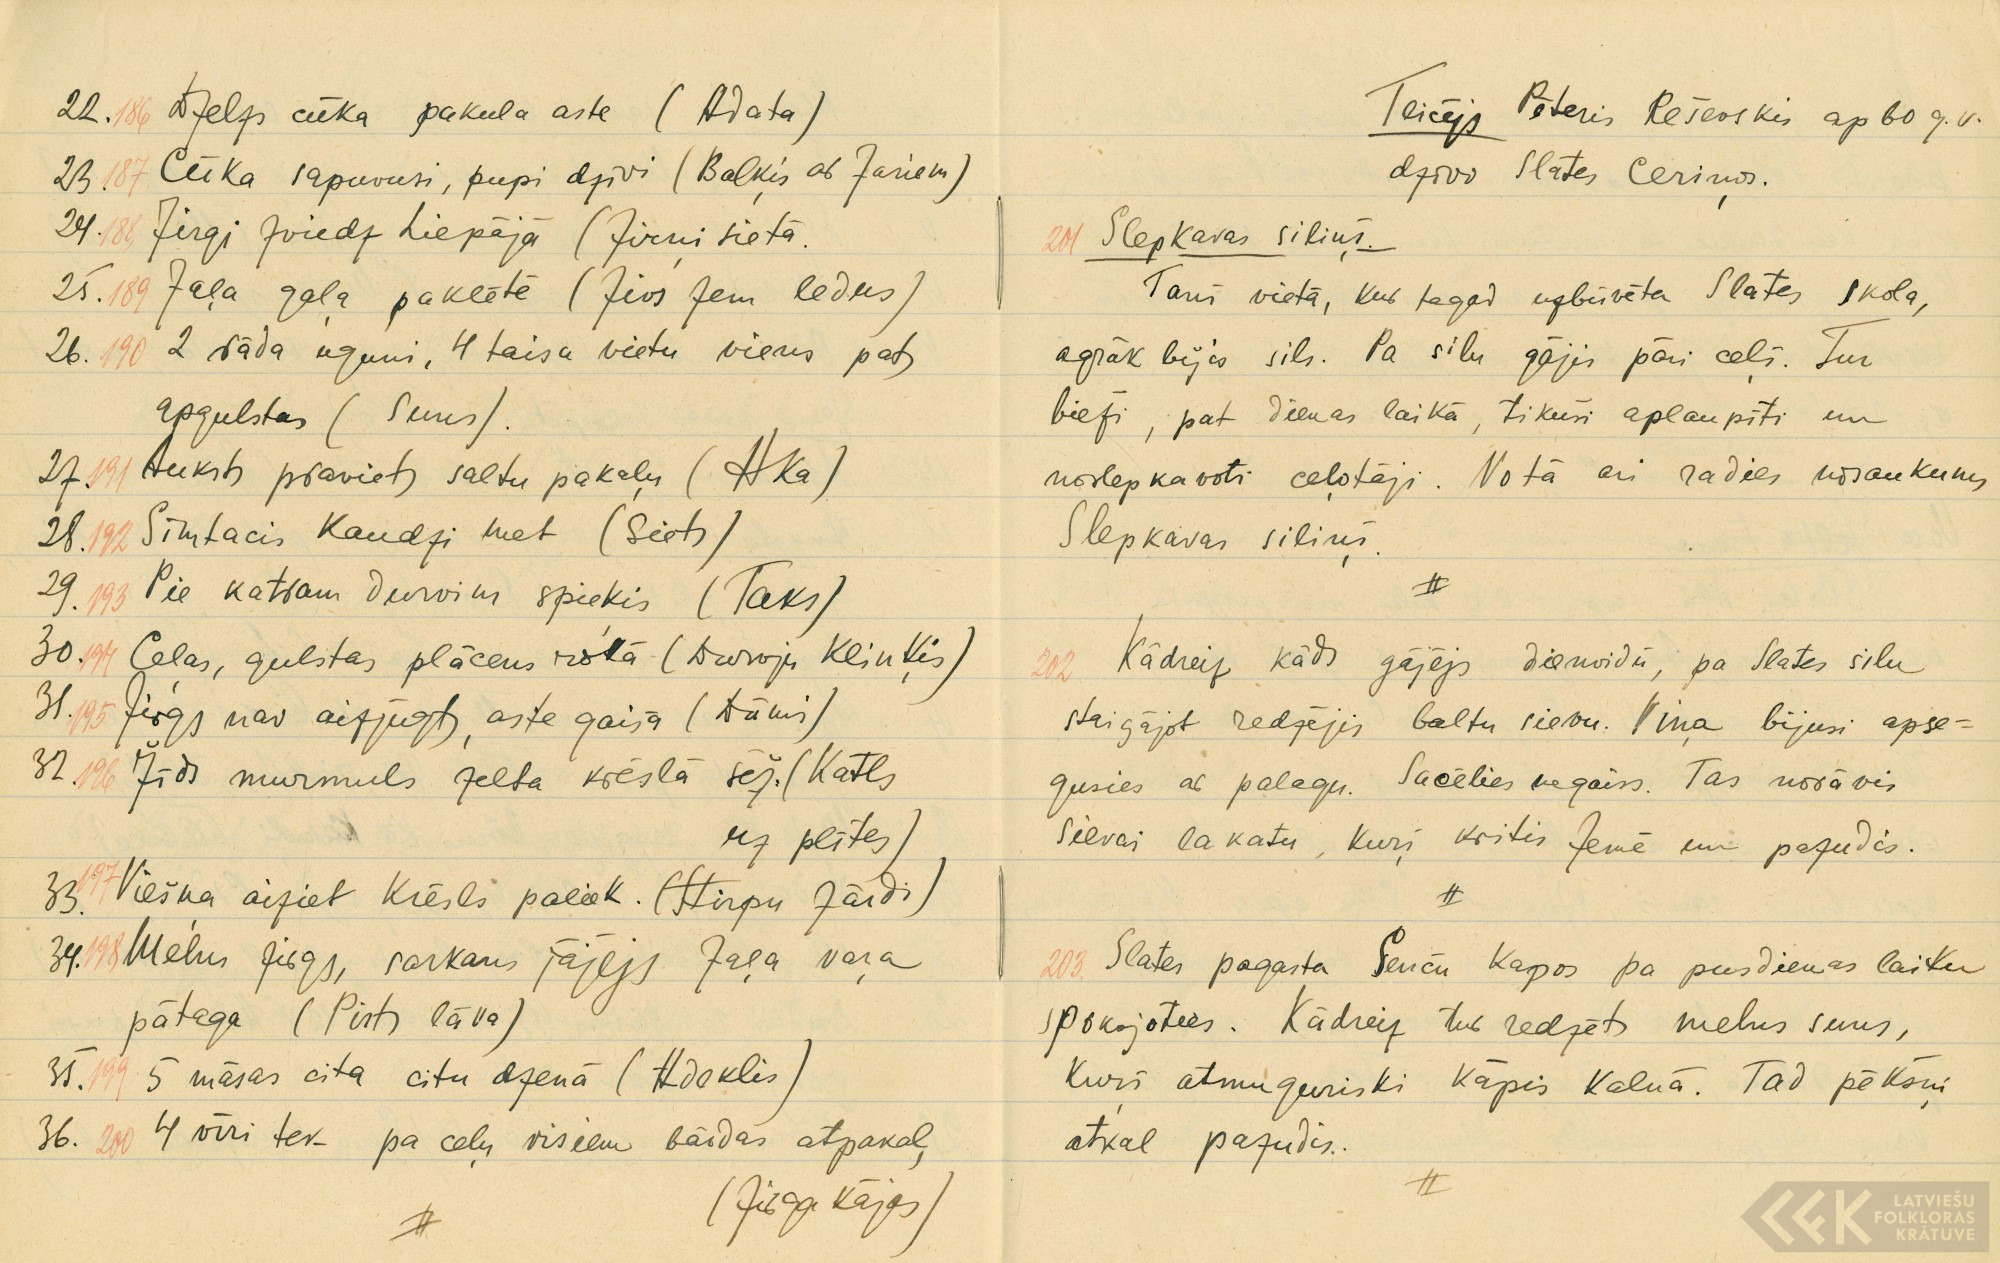 22. 186 Dzelzs cūka pakula aste (Adata)
23. 187 Cūka sapuvusi, pupi dzīvi (Baļķis ar zariem)
24. 188 Zirgi zviedz Liepājā (Zirņi sietā.
25. 189 Zaļa gaļa paklētē (Zivs zem ledus)
26. 190 2 rāda uguni, 4 taisa vietu viens pats
apgulstas (Suns).
27. 191 Auksts praviets saltu pakaļu (Aka)
28. 192 Simtacis kaudzi met (Siets)
29. 193 Pie katram durvim spieķis (Taks)
30. 194 Ceļas, gulstas plācens rokā (Durvju kliņķis)
31. 195 Zirgs nav aizjūgts, aste gaisā (Dūmi)
32. 196 Žīds murmuls zelta krēslā sēž. (Katls
uz plītes)
33. 197 Viešņa aiziet krēsls paliek. (Stirpu zārdi)
34. 198 Melns zirgs, sarkans jājējs zaļa vaŗa
pātaga (Pirts lāva)
35. 199 5 māsas cita citu dzenā (Adeklis)
36. 200 4 vīri tek pa ceļu visiem bārdas atpakaļ,
(Zirga kājas)
#
Teicējs Pēteris Reševskis ap 60 g. v.
dzīvo Slates Ceriņos.
201 Slepkavas siliņš.
Tanī vietā, kur tagad uzbūvēta Slates skola,
agrāk bijis sils. Pa silu gājis pāri ceļš. Tur
bieži, pat dienas laikā, tikuši aplaupīti un
noslepkavoti ceļotāji. No tā ari radies nosaukums
Slepkavas siliņš.
#
202 Kādreiz kāds gājējs dienvidū, pa Slates silu
staigājot redzējis baltu sievu. Viņa bijusi apse=
gusies ar palagu. Sacēlies negaiss. Tas norāvis
sievai lakatu, kuŗš kritis zemē un pazudis.
#
203. Slates pagasta Senču kapos pa pusdienas laiku
spokojoties. Kādreiz tur redzēts melns suns,
kuŗš atmuguriski kāpis kalnā. Tad pēkšņi
atkal pazudis..
#
LATVIEŠU
FOLKLORAS
KRĀTUVE